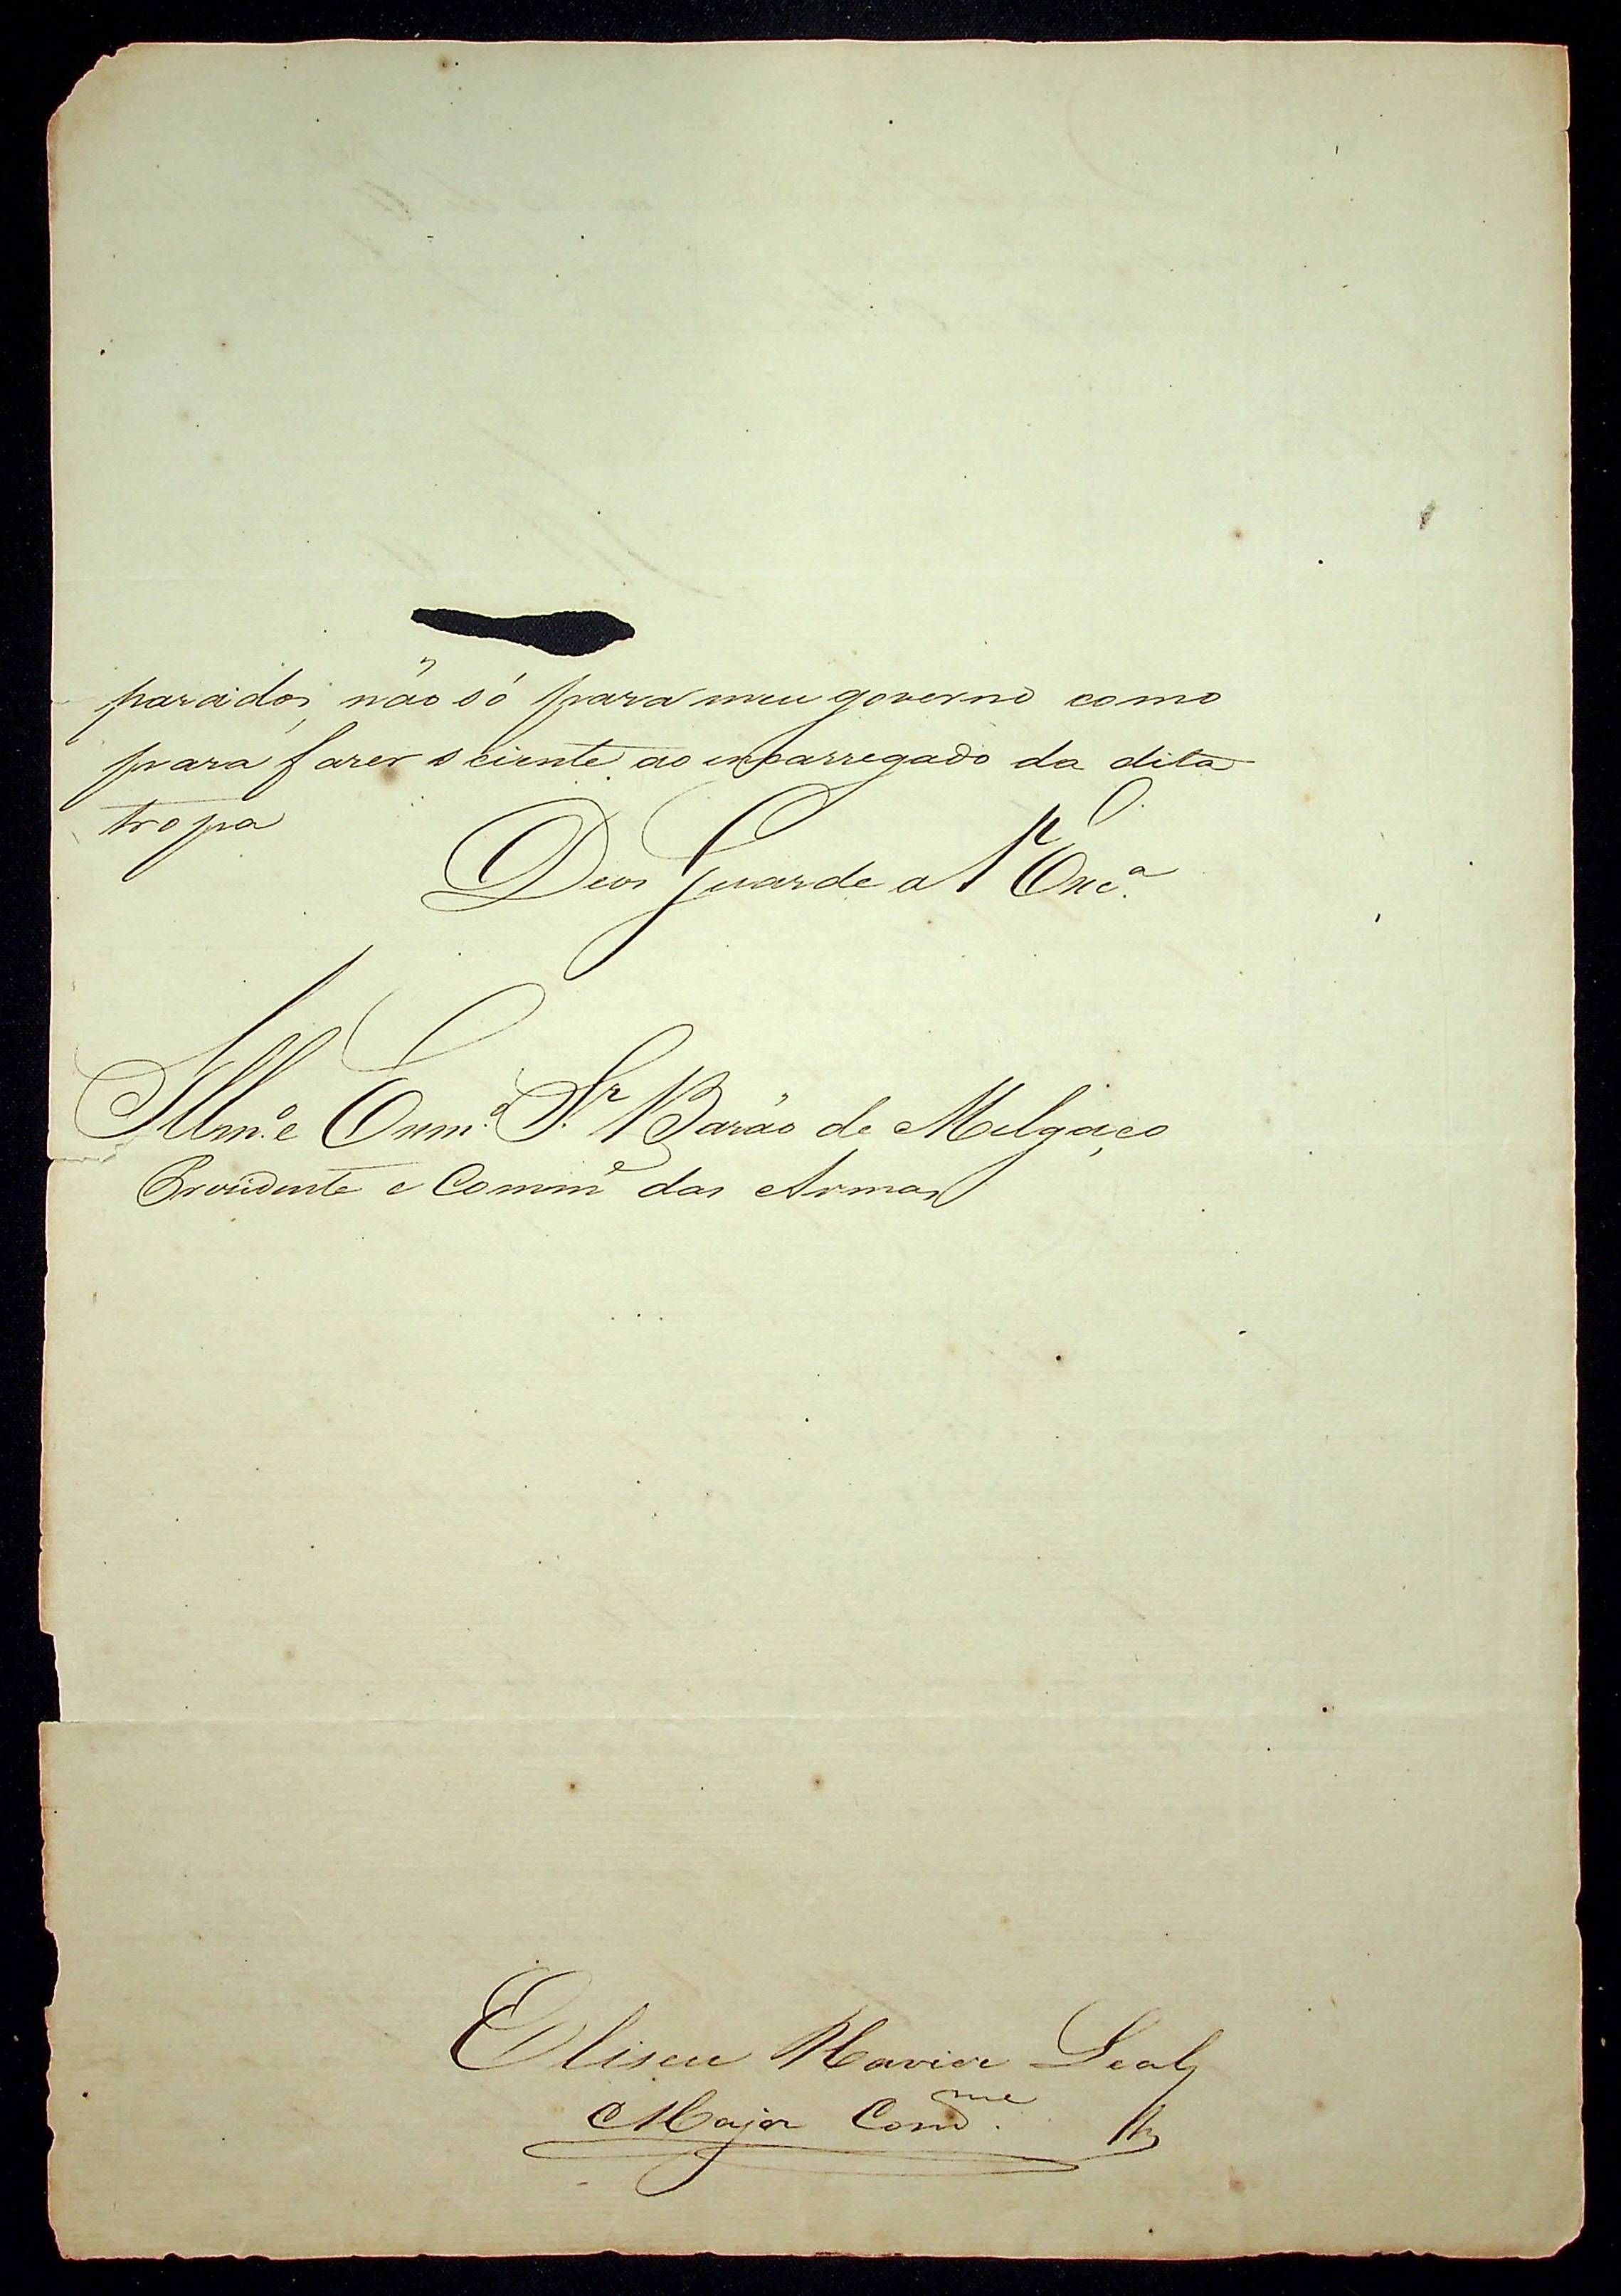 parados, não só para meu governo como
para fazer sciente ao encarregado da dita
tropa
Deos Guarde a V Exc.ª
Illm.º e Exm.º Sr. Barão de Melgaço
Presidente e Comm.e das Armas
Eliseu Xavier Leal
Major Comd.me